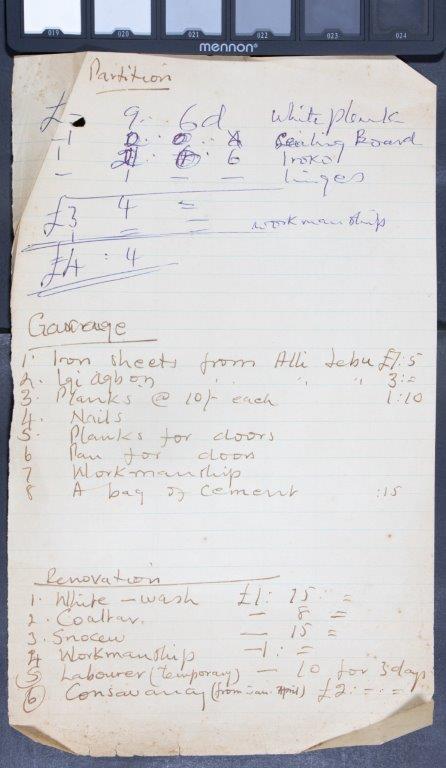 019 020 021 022 023 024
mennon
Partition
£- 9 .. 6d White plank
1 Ceiling Board
1 6 Iroko
- 1 - - hinges
£3 4 =
1 = = workmanship
£4 : 4
Gaurage
1. Iron sheets from Alli Jebu £7:5
2. Igi agbon " " " 3:=
3. Planks @ 10/- each 1:10
4. Nails
5. Planks for doors
6 Pau for doors
7 Workmanship
8 A bag of cement :15
Renovation
1. White-wash £1: 15 : =
2. Coaltar. — 8 =
3. Snocew — 15 =
4 Workmanship —1 : =
5 Labourer (temporary) — 10 for 3 days
6 Consavancy (from Jan. April) £2: - : =